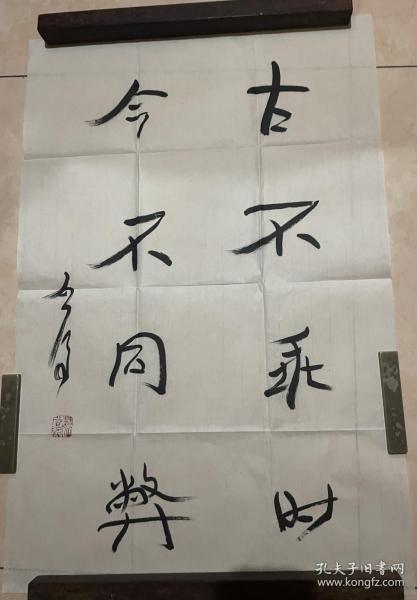 古不乖时
今不同弊
孔夫子旧书网
www.kongfz.com